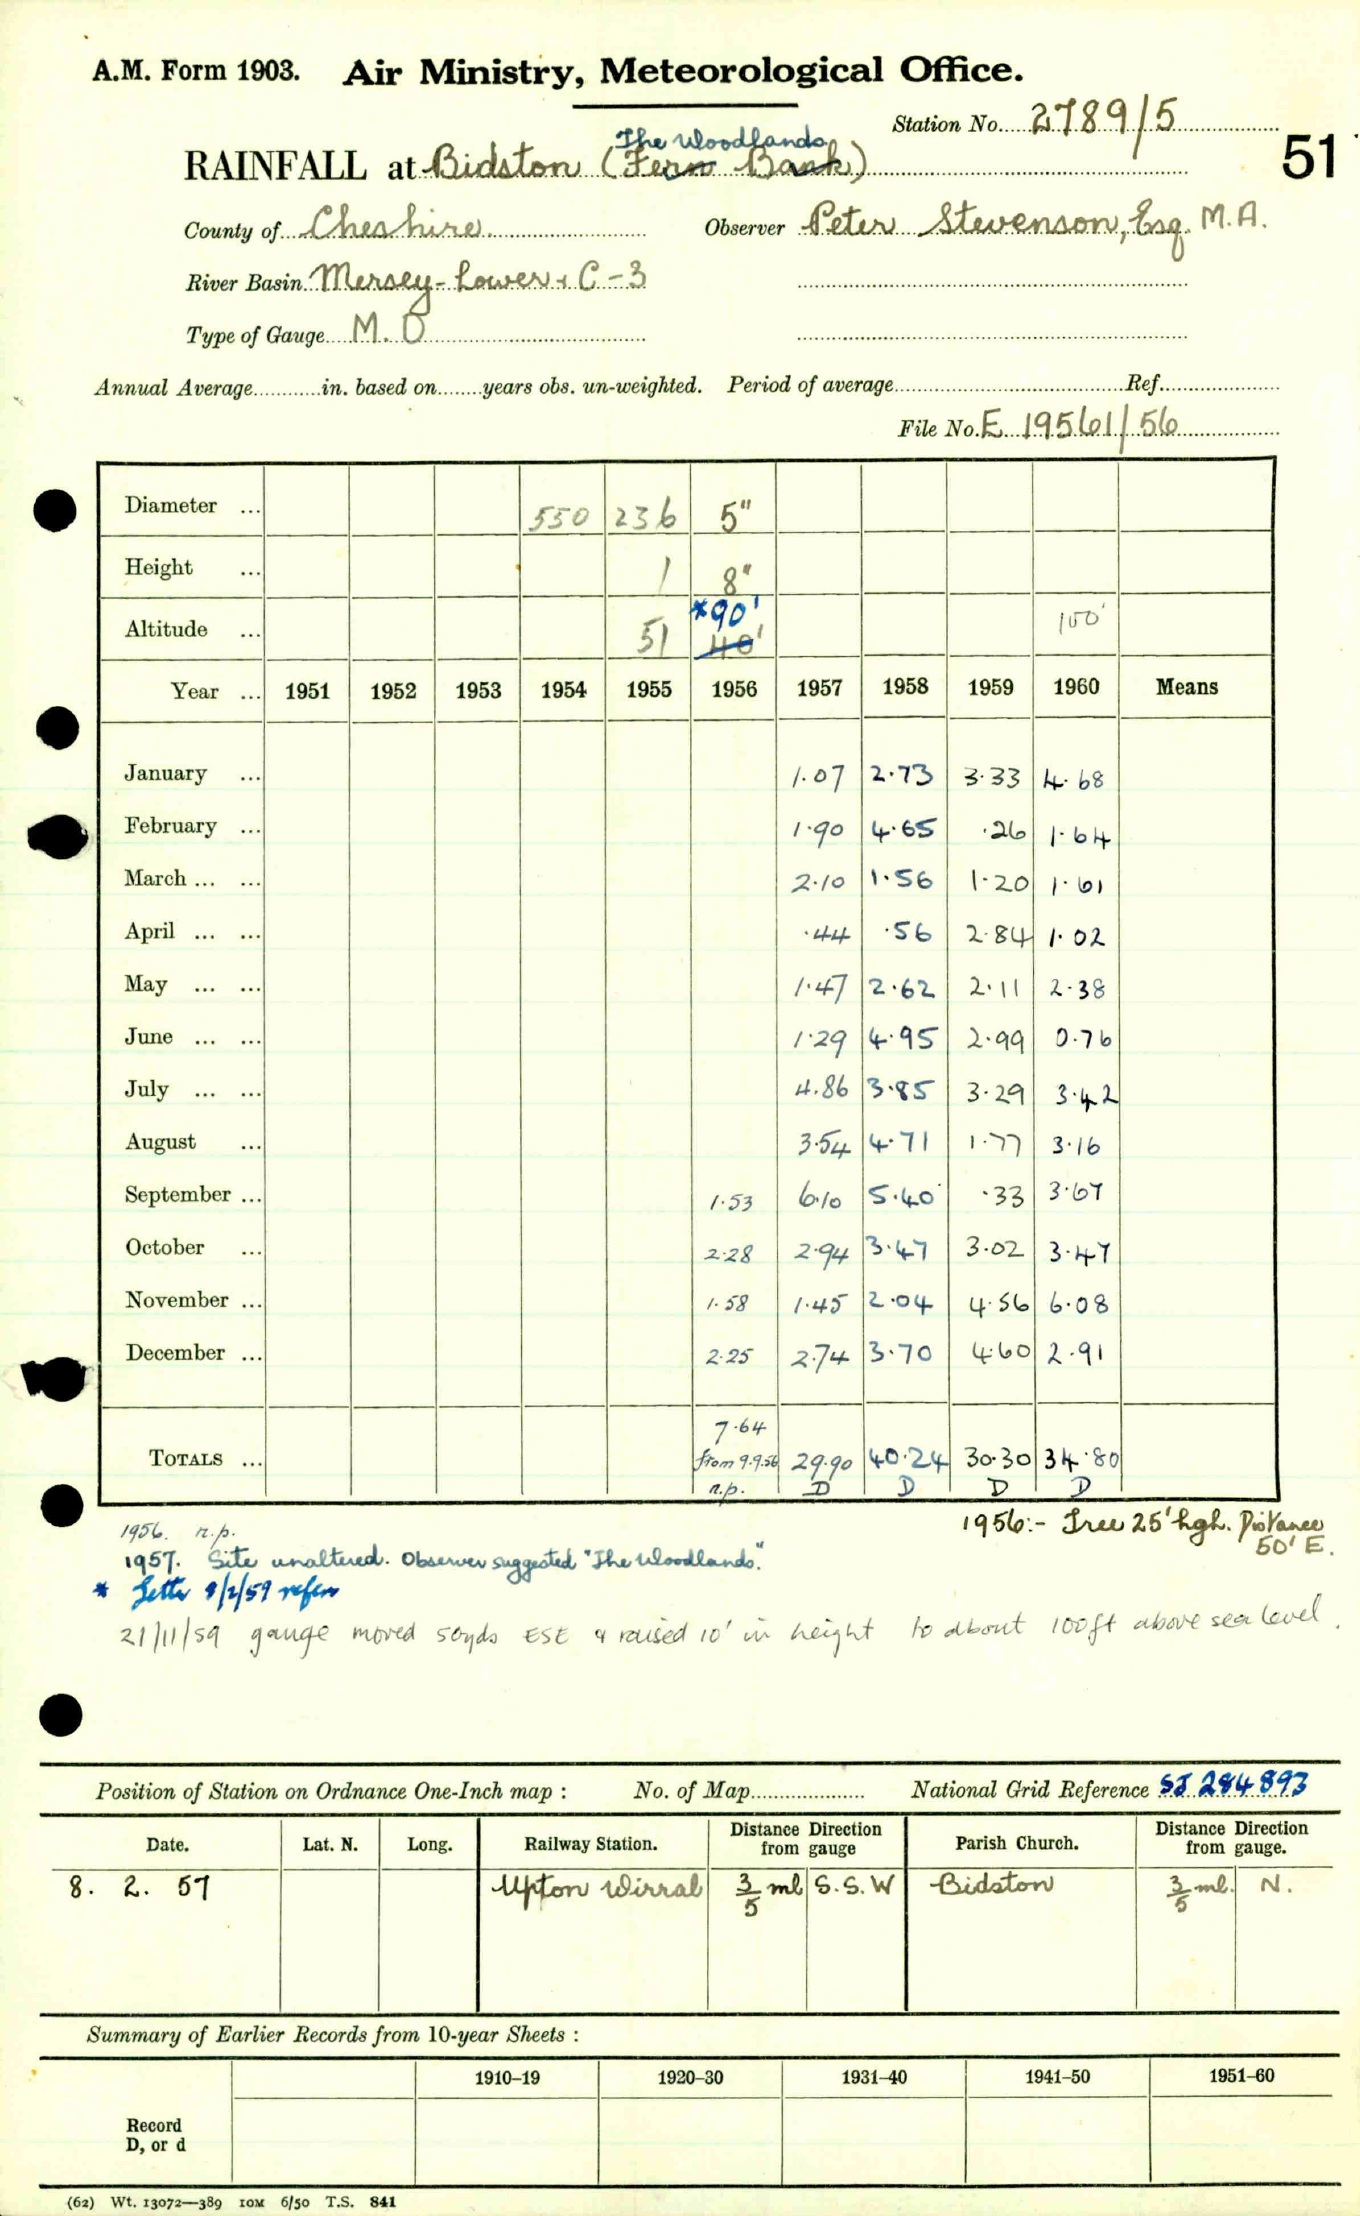 A.M. Form 1903. Air Ministry, Meteorological Office.
Station No. 2789/5
51
The Woodlands
RAINFALL at Bidston (Fern Bank)
County of Cheshire Observer Peter Stevenson, Esq. M.A.
River Basin Mersey-Lower + C-3
Type of Gauge M.O
Annual Average............in. based on........years obs. un-weighted. Period of average............ Ref............
File No. E 19561/56
Diameter ... 550 236 5"
Height ... 1 8"
*90'
Altitude ... 51 40' 100'
Year ... 1951 1952 1953 1954 1955 1956 1957 1958 1959 1960 Means
January ... 1.07 2.73 3.33 4.68
February ... 1.90 4.65 .26 1.64
March ... ... 2.10 1.56 1.20 1.61
April ... ... .44 .56 2.84 1.02
May ... ... 1.47 2.62 2.11 2.38
June ... ... 1.29 4.95 2.99 0.76
July ... ... 4.86 3.85 3.29 3.42
August ... 3.54 4.71 1.77 3.16
September ... 1.53 6.10 5.40 .33 3.67
October ... 2.28 2.94 3.47 3.02 3.47
November ... 1.58 1.45 2.04 4.56 6.08
December ... 2.25 2.74 3.70 4.60 2.91
7.64
TOTALS ... from 9.9.56 29.90 40.24 30.30 34.80
n.p. D D D D
1956. n.p.
1956:- Tree 25' hgh. Distance 50' E.
1957. Site unaltered. Observer suggested "The Woodlands."
* Letter 9/2/59 refers
21/11/59 gauge moved 50yds ESE & raised 10' in height to about 100ft above sea level.
Position of Station on Ordnance One-Inch map : No. of Map............ National Grid Reference SJ 284893
Date. Lat. N. Long. Railway Station. Distance from Direction gauge Parish Church. Distance from Direction gauge.
8. 2. 57 Upton Wirral 3/5 ml S.S.W Bidston 3/5 ml. N.
Summary of Earlier Records from 10-year Sheets :
1910–19 1920–30 1931–40 1941–50 1951–60
Record
D, or d
(62) Wt. 13072—389 10M 6/50 T.S. 841